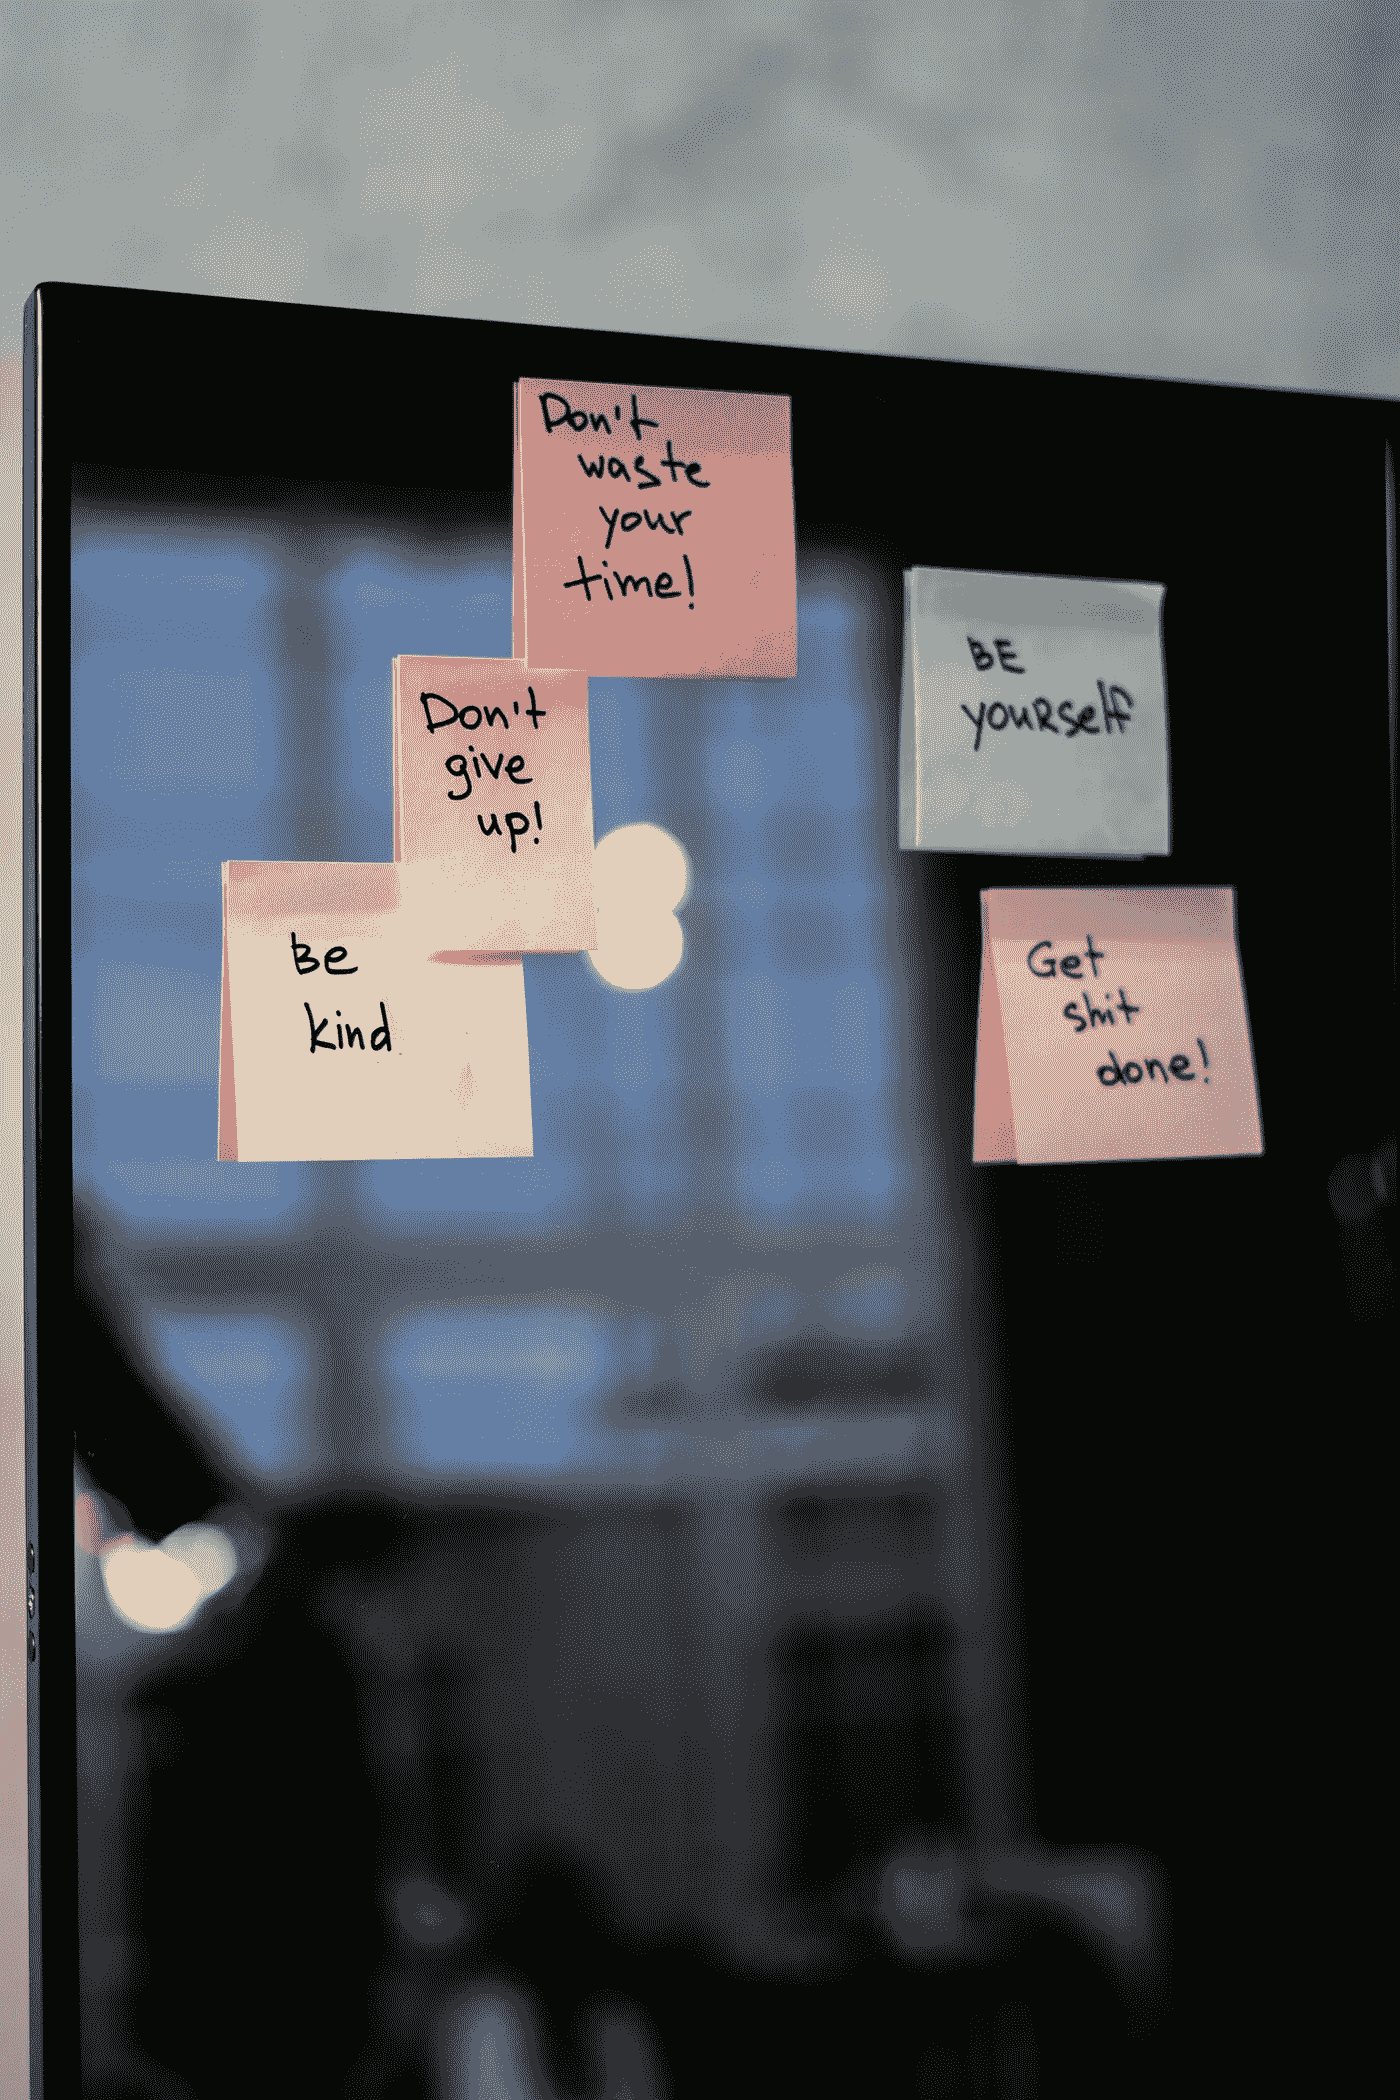 Don't
waste
your
time!
Don't
give
up!
Be
kind
BE
YOURSelf
Get
shit
done!